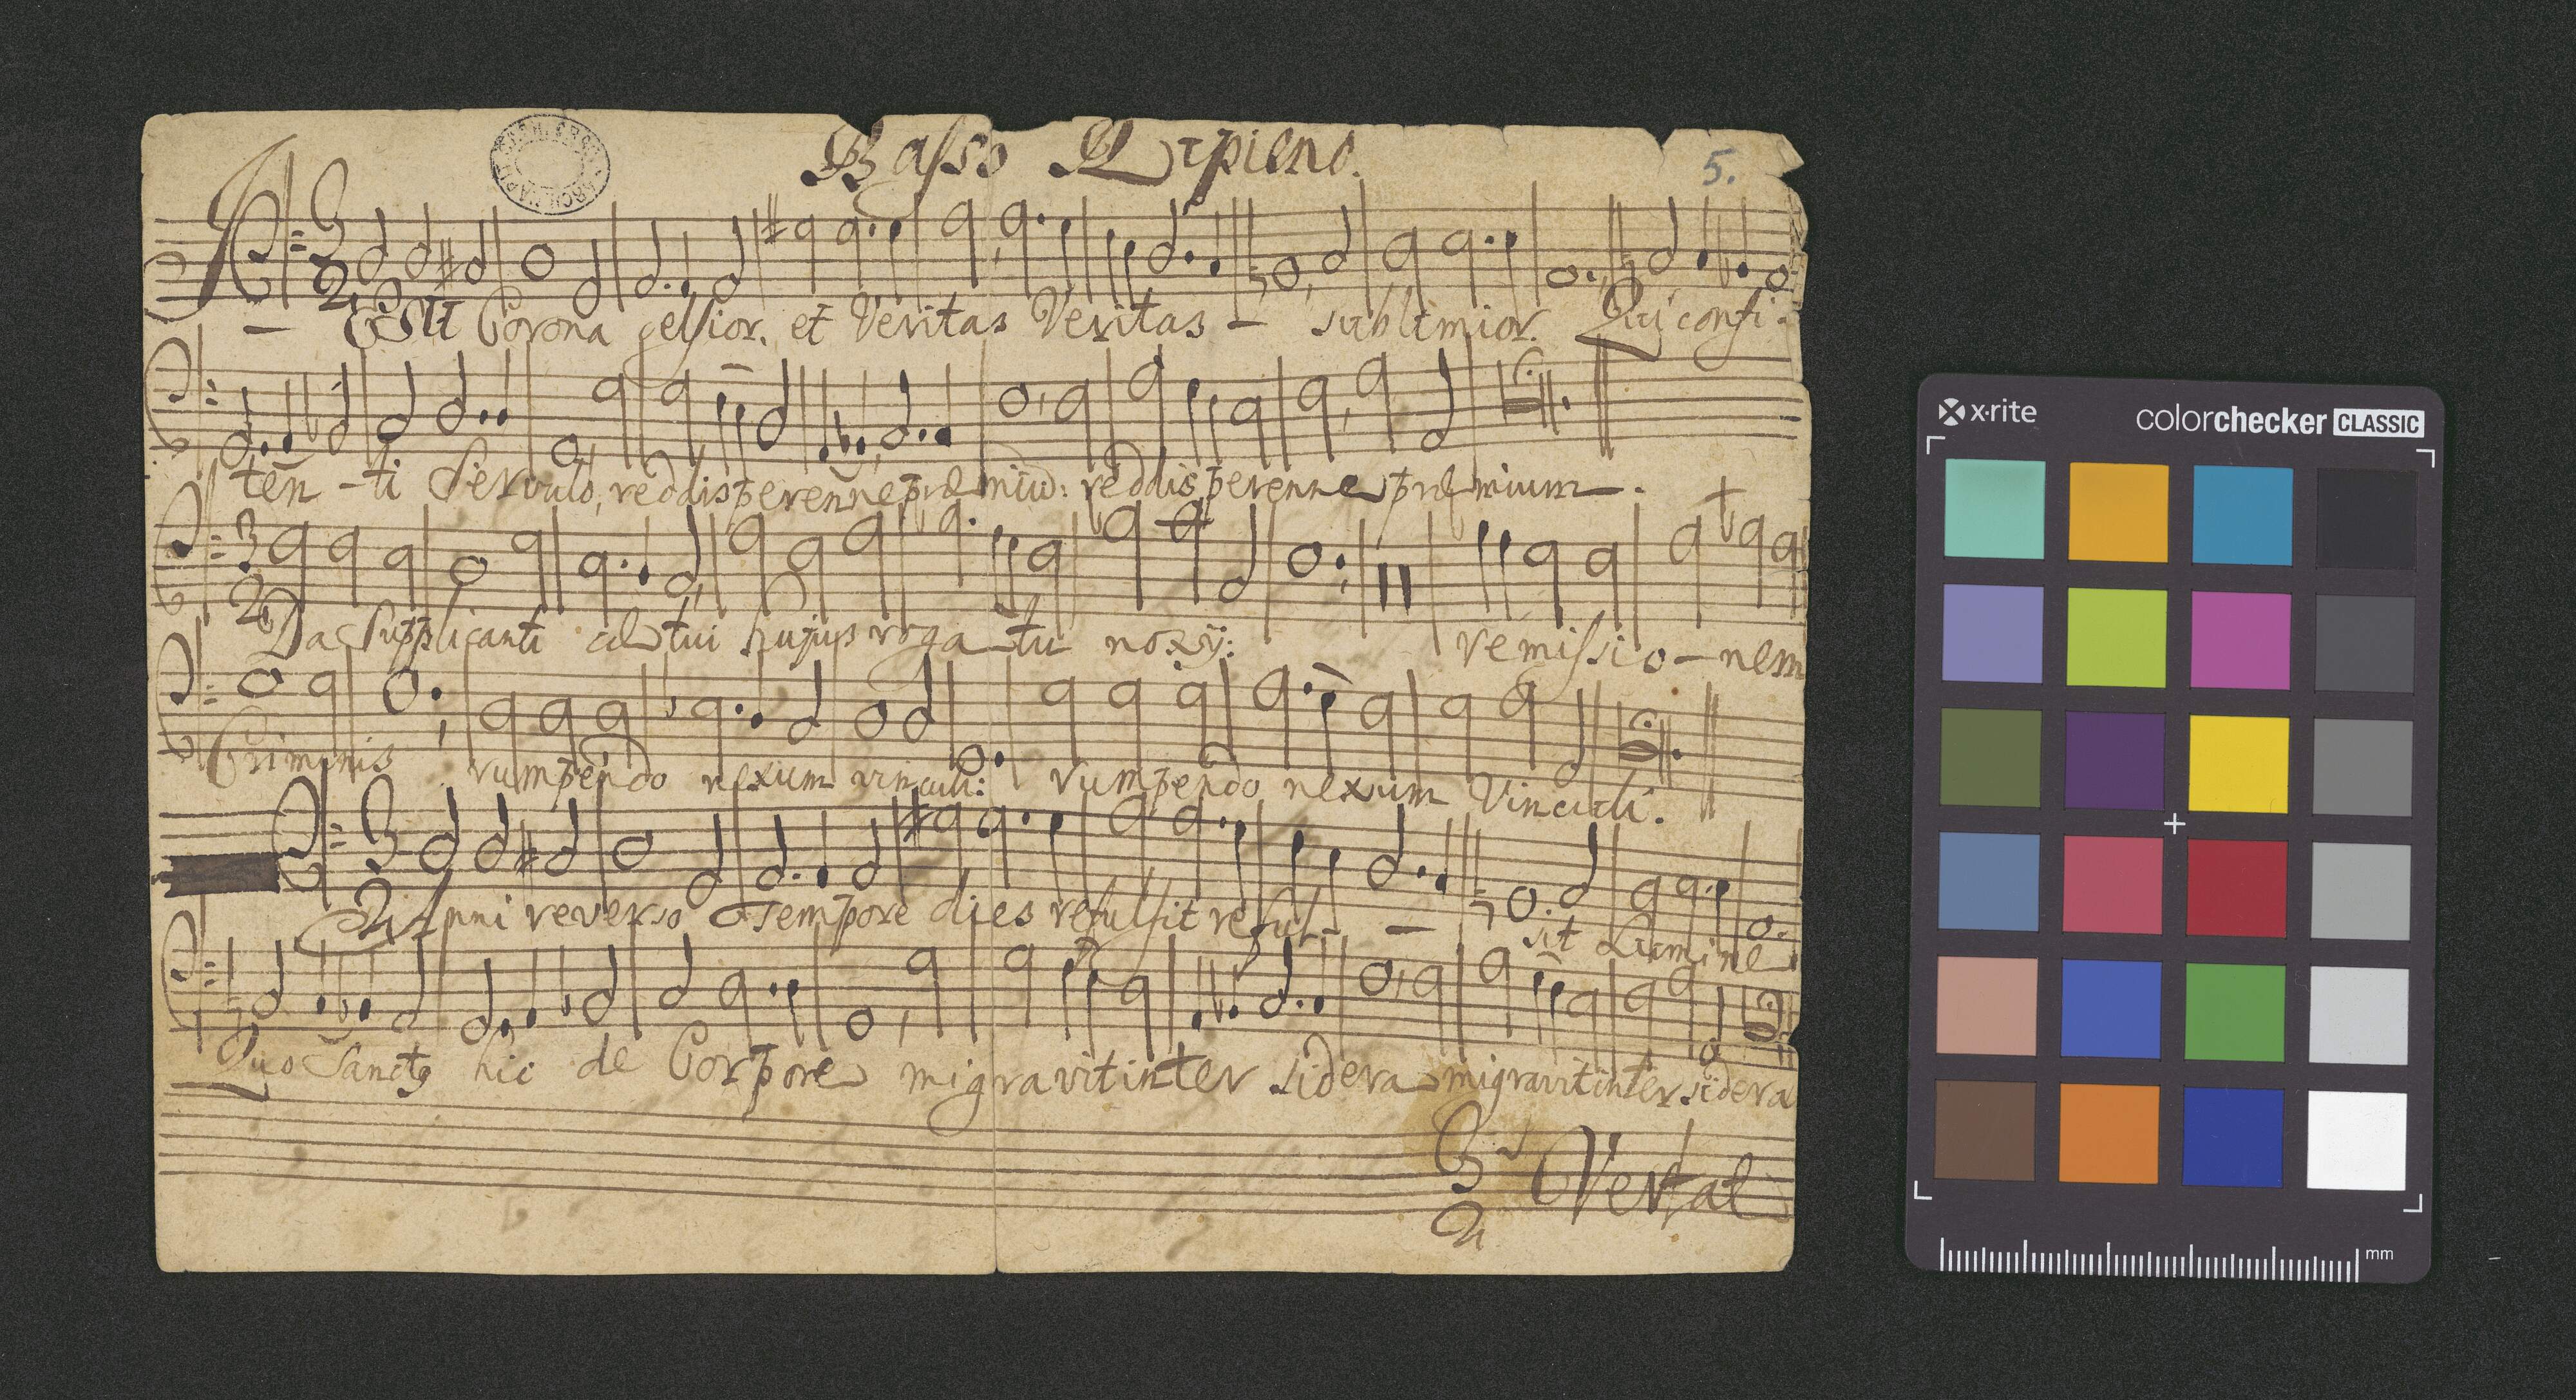 Basso Ripieno.
5.
Corona celsior. et Veritas Veritas - sublimior. Qui confi-
ten - ti Servulo, reddis perenne præmiu: reddis perenne præmium.
Da Supplicanti cætui hujus roga - tu noxÿ: remissio - nem
Criminis rumpendo nexum vinculi: rumpendo nexum Vinculi.
Anni reverso Tempore dies refulsit reful - - sit Lumine
Quo Sanctg hic de Corpore migravit inter sidera migravit inter sidera
3 Vertat
2
x·rite
colorchecker CLASSIC
mm